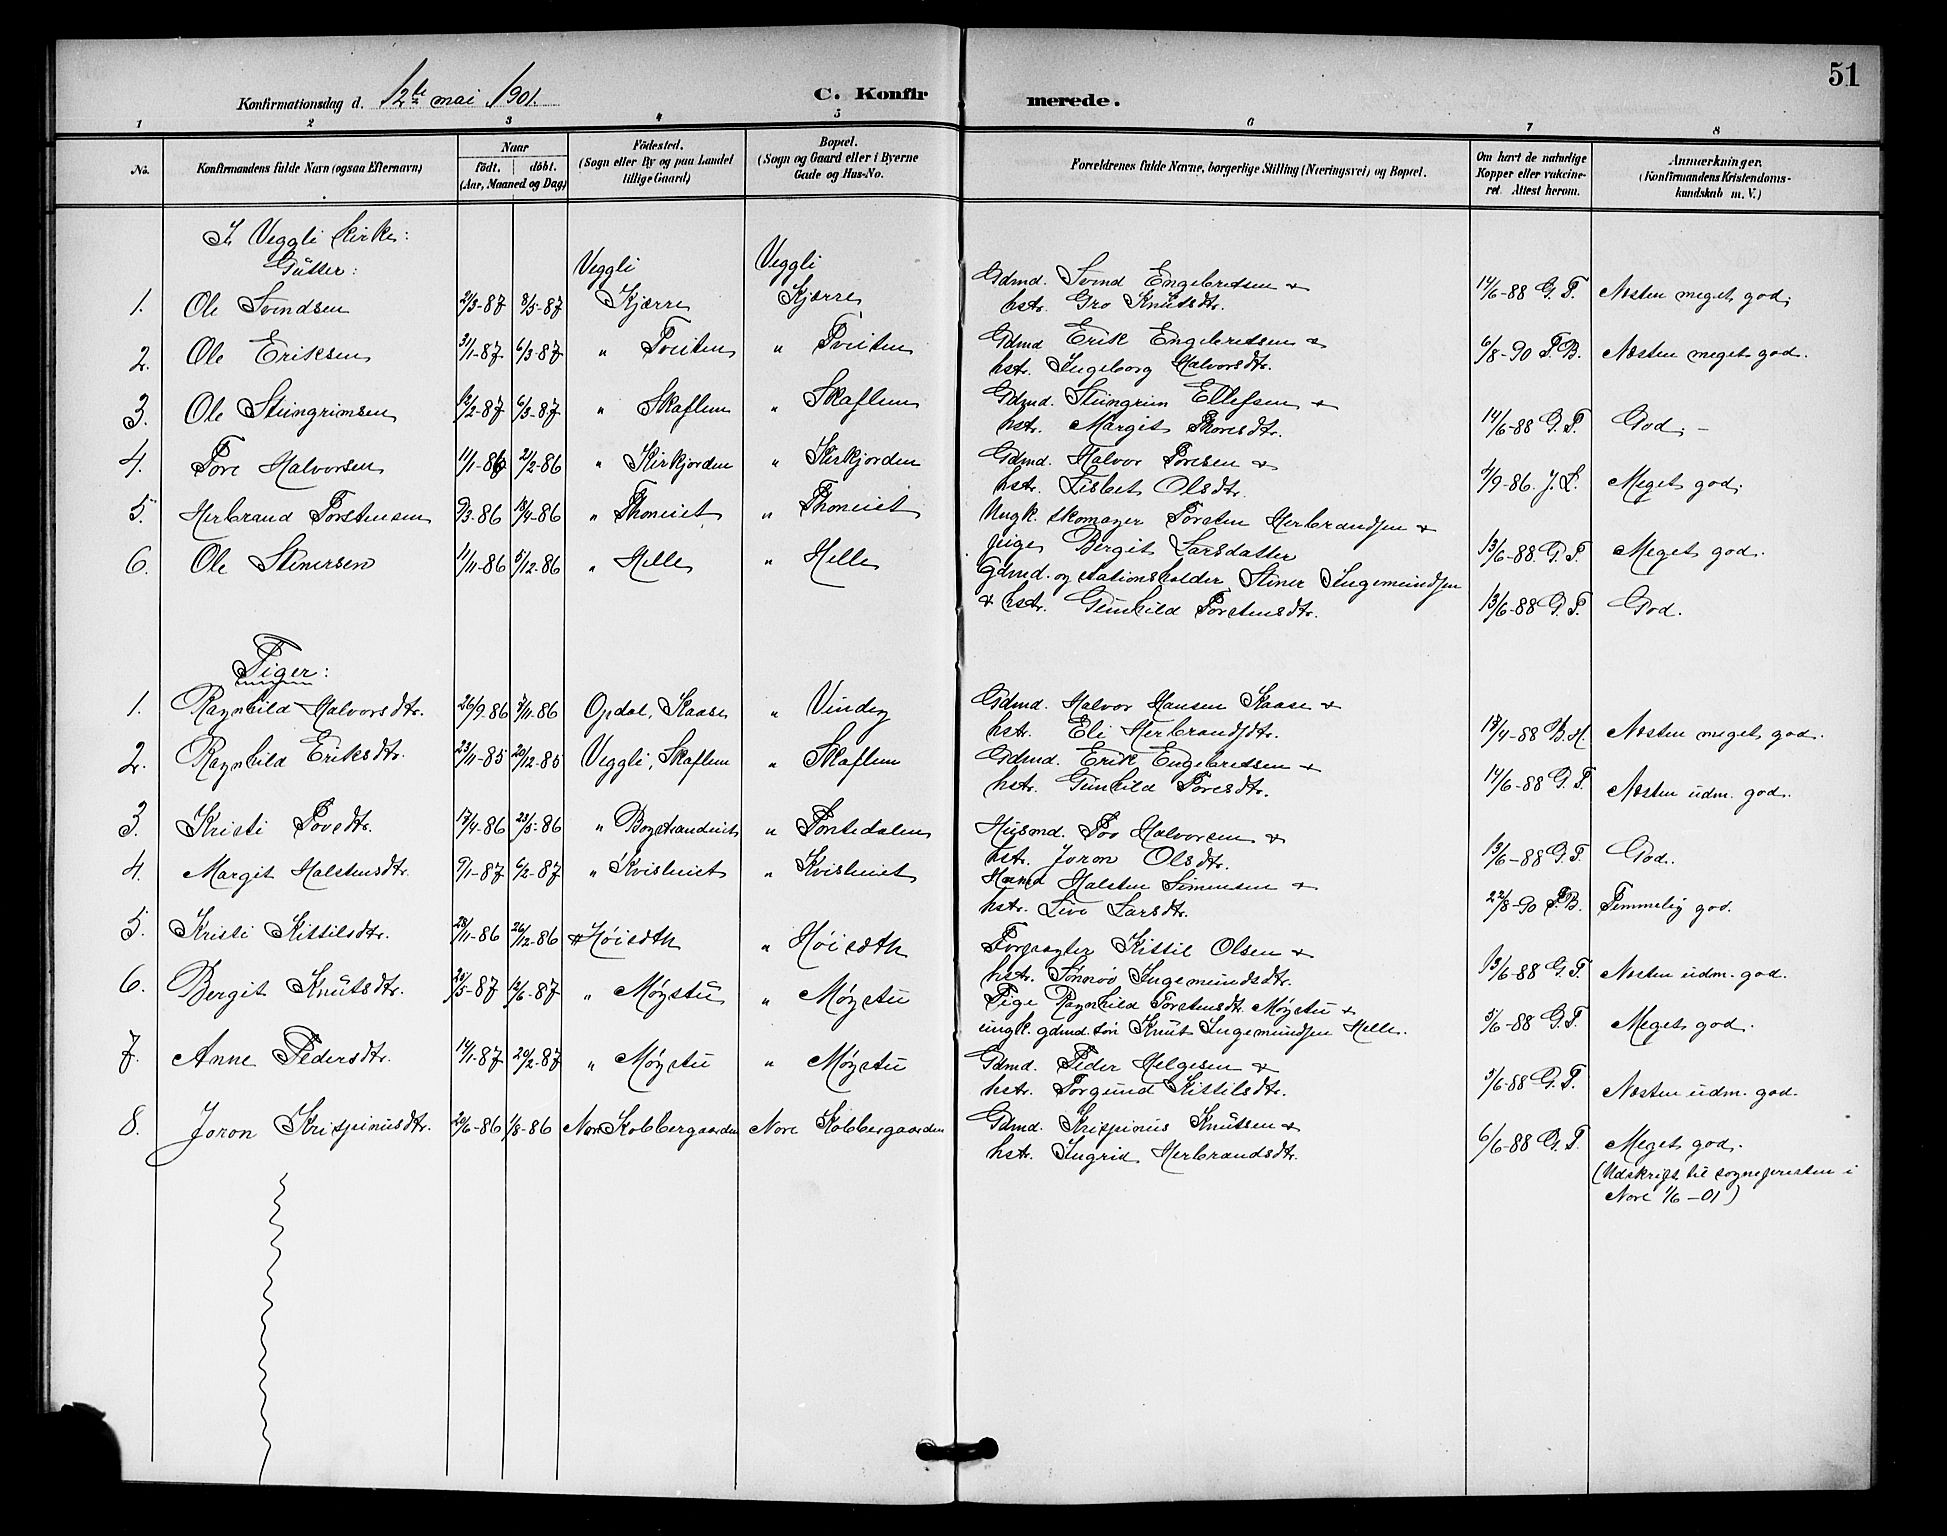 51
Konfirmationsdag d. 12te mai 1901.
C. Konfirmerede.
1 2 3 4 5 6 7 8
No. Konfirmandens fulde Navn (ogsaa Efternavn) Naar födt. döbt. (Aar, Maaned og Dag) Födested. (Sogn eller By og paa Landet tillige Gaard) Bopæl. (Sogn og Gaard eller i Byerne Gade og Hus-No. Forældrenes fulde Navne, borgerlige Stilling (Næringsvei) og Bopæl. Om havt de naturlige Kopper eller vakcineret. Attest herom. Anmærkninger. (Konfirmandens Kristendomskundskab m. V.)
I Veggli kirke:
Gutter:
1. Ole Svendsen 2/3-87 8/5-87 Veggli Kjærre Veggli Kjærre Gdmd. Svend Engebretsen & hstr. Gro Knutsdtr. 14/6-88 G.T. Næsten meget god.
2. Ole Eriksen 31/1-87 6/3-87 " Tveiten " Tveiten Gdmd Erik Engebretsen & hstr. Ingeborg Halvorsdtr. 6/8-90 T.B. Næsten meget god.
3. Ole Steingrimsen 12/2-87 6/3-87 " Skaflem " Skaflem Gdmd. Steingrim Ellefsen & hstr. Margit Thoresdtr. 14/6-88 G.T. God. -
4. Tore Halvorsen 11/1-86 21/2-86 " Kirkjorden " Kirkjorden Gdmd. Halvor Toresen & hstr. Lisbet Olsdtr. 4/9-86. J.L. Meget god.
5. Herbrand Torstensen 9/3-86 18/4-86 " Thoneiet " Thoneiet Ungk. skomager Torsten Herbrandsen & pige Bergit Larsdatter 13/6-88 G.T. Meget god.
6. Ole Steinersen 11/11-86 5/12-86 " Helle " Helle Gdmd. og stationsholder Steiner Ingemundsen & hstr. Gunhild Torstensdtr. 13/6-88 G.T. God.
Piger:
1. Ragnhild Halvorsdtr. 26/9-86 7/11-86 Opdal, Kaase " Vindeg Gdmd. Halvor Hansen Kaase & hstr. Eli Herbrandsdtr. 18/4-88 B.H. Næsten meget god.
2. Ragnhild Eriksdtr. 23/11-85 20/12-85 Veggli, Skaflem " Skaflem Gdmd. Erik Engebretsen & hstr. Gunhild Toresdtr. 14/6-88 G.T. Næsten udm. god.
3. Kristi Tovsdtr. 17/4-86 23/5-86 " " Husmd. Tov Halvorsen & hstr. Joron Olsdtr. 13/6-88 G.T. God.
4. Margit Halstensdtr. 9/1-87 6/2-87 " Kvisleiet " Kvisleiet Halsten Simensen & hstr. Live Larsdtr. 22/8-90 T.B. Temmelig god.
5. Kristi Kittilsdtr. 28/11-86 26/12-86 " Höisæth " Höisæth Forpagter Kittil Olsen & hstr. Sønnøv Ingemundsdtr. 13/6-88 G.T. Næsten udm. god.
6. Bergit Knutsdtr. 20/5-87 12/6-87 " Møystu " Møystu Pige Ragnhild Torstensdtr. Møystu & ungk. gdmd.søn Knut Ingemundsen Helle. 5/6-88 G.T. Meget god.
7. Anne Pedersdtr. 14/1-87 20/2-87 " Møystu " Møystu Gdmd. Peder Helgesen & hstr. Torgund Kittilsdtr. 5/6-88 G.T. Næsten udm. god.
8. Joron Krispinusdtr. 20/6-86 1/8-86 Nore Kobbergaarden Nore Kobbergaarden Gdmd. Krispinus Knutsen & hstr. Ingrid Herbrandsdtr. 6/6-88 G.T. Meget god.
(Udskrift til sognepresten i
Nore 1/6-01)